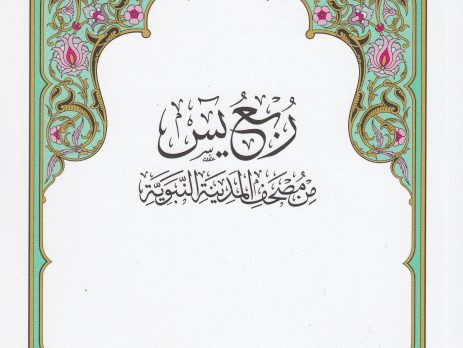 رُبعُ يسٓ
مِن مُصْحَفِ المَدِينَةِ النَّبَوِيَّةِ